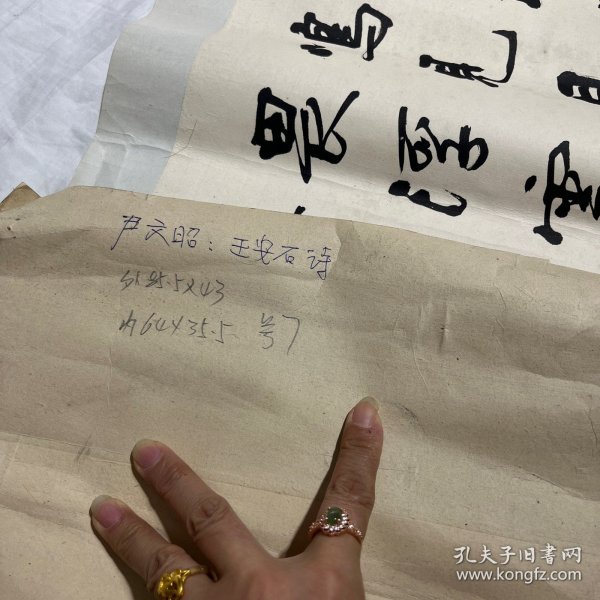 鳴見日
畏浮雲
卢文昭：王安石诗
外85.5x43
内64x35.5 号7
孔夫子旧书网
www.kongfz.com